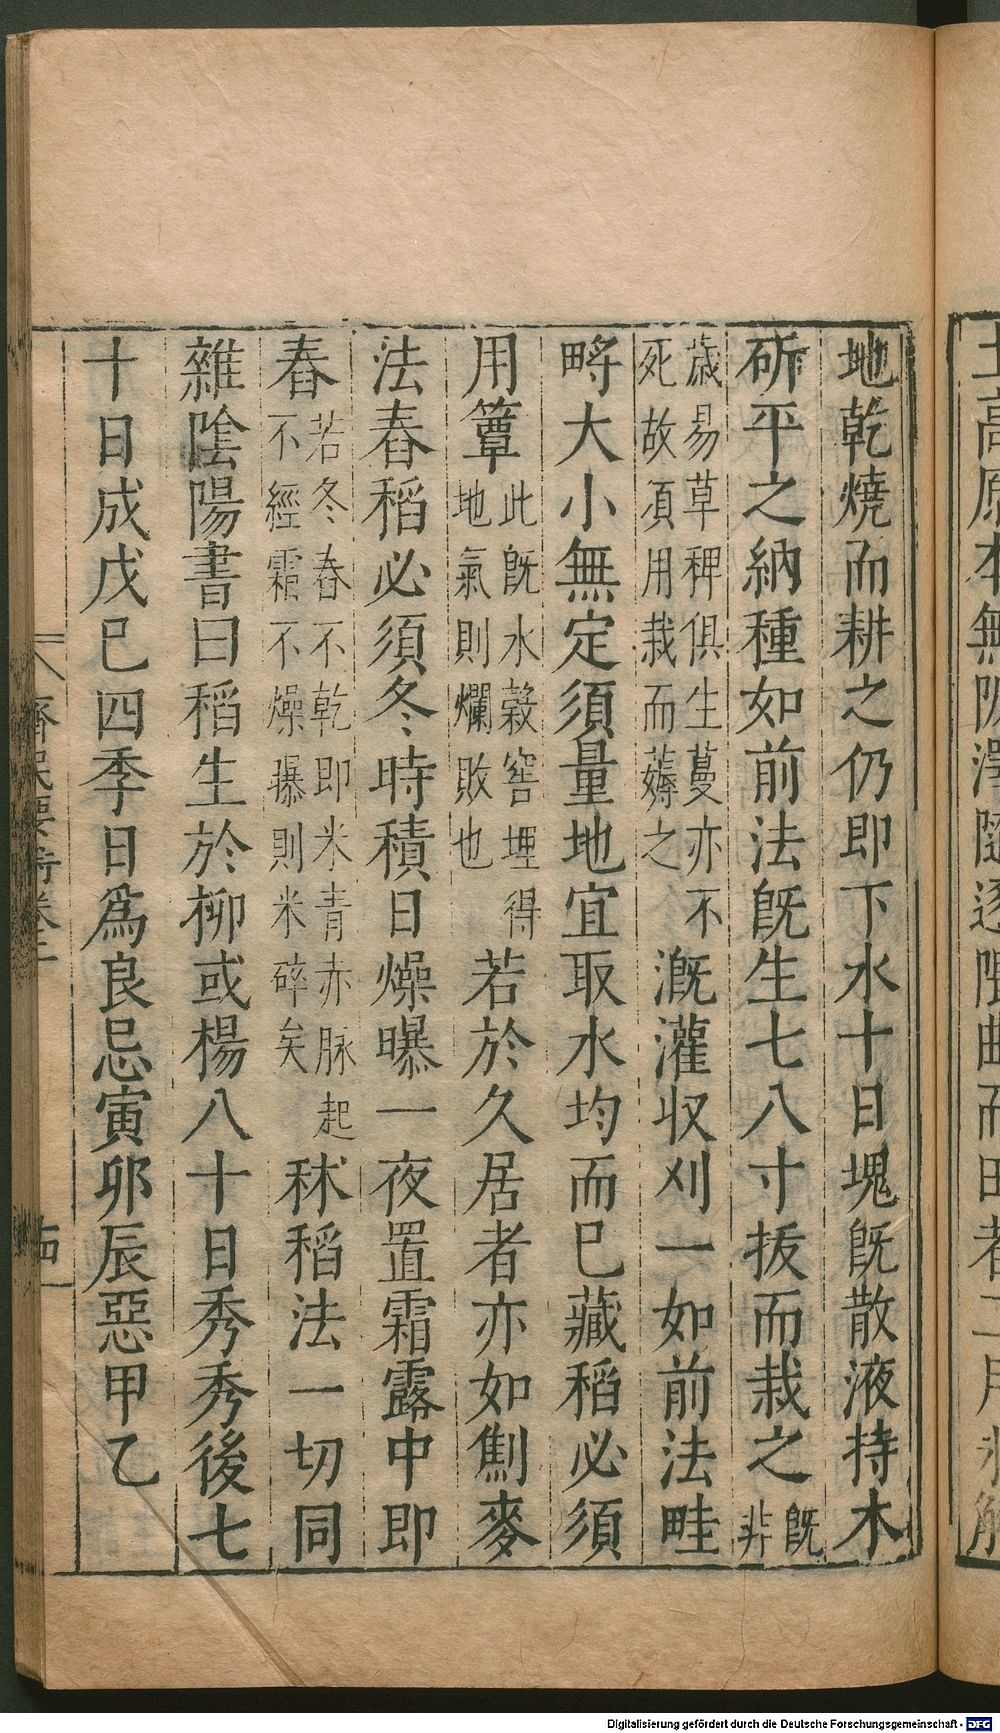 地乾燒而耕之仍即下水十日塊旣散液持木
斫平之納種如前法旣生七八寸拔而栽之旣非
歲易草稗俱生蔓亦不死故湏用栽而薅之溉灌収刈一如前法畦
畤大小無定須量地宜取水均而已藏稻必須
用簟此旣水榖窖埋得地氣則爛敗也若於久居者亦如劁麥
法舂稻必須冬時積日燥曝一夜置霜露中即
舂若冬舂不乾即米青赤脉起不經霜不燥曝則米碎矣秫稻法一切同
雜陰陽書曰稻生於柳或楊八十日秀秀後七
十日成戊巳四季日爲良忌寅卯辰惡甲乙
齊民要術卷二
Digitalisierung gefördert durch die Deutsche Forschungsgemeinschaft - DFG